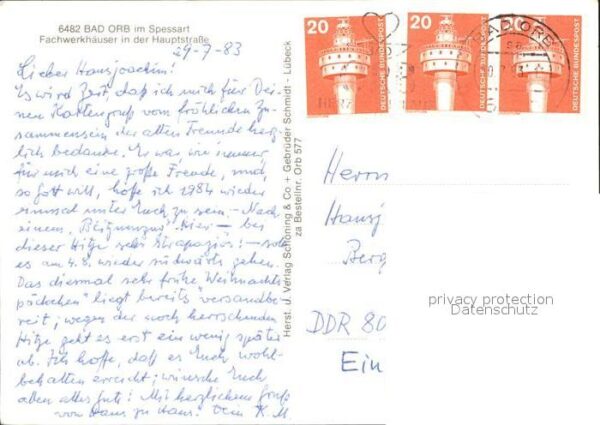 6482 BAD ORB im Spessart
Fachwerkhäuser in der Hauptstraße
29-7-83
Lieber Hansjoachim!
Es wird Zeit, daß ich mich für Dei-
nen Kartengruß vom fröhlichen Zu-
sammensein der alten Freunde herz-
lich bedanke. Es war, wie immer,
für mich eine große Freude, und,
so Gott will, hoffe ich 1984 wieder
einmal unter Euch zu sein. - Nach
einem "Blitzumzug" hier - bei
dieser Hitze sehr strapaziös! - soll
es am 4.8. wieder südwärts gehen.
Das diesmal sehr frühe Weihnachts-
päckchen liegt bereits "versandbe-
reit"; wegen der noch herrschenden
Hitze geht es erst ein wenig später
ab. Ich hoffe, daß es Euch wohl-
behalten erreicht; wünsche Euch
allen alles Gute! Mit herzlichem Gruß
von Haus zu Haus! Dein K. M.
Herst. u. Verlag Schöning & Co + Gebrüder Schmidt - Lübeck
za Bestellnr. Orb 577
20
DEUTSCHE BUNDESPOST
20
DEUTSCHE BUNDESPOST
20
DEUTSCHE BUNDESPOST
BAD ORB
Herrn
Hansj
Berg
DDR 80
Ein
privacy protection
Datenschutz